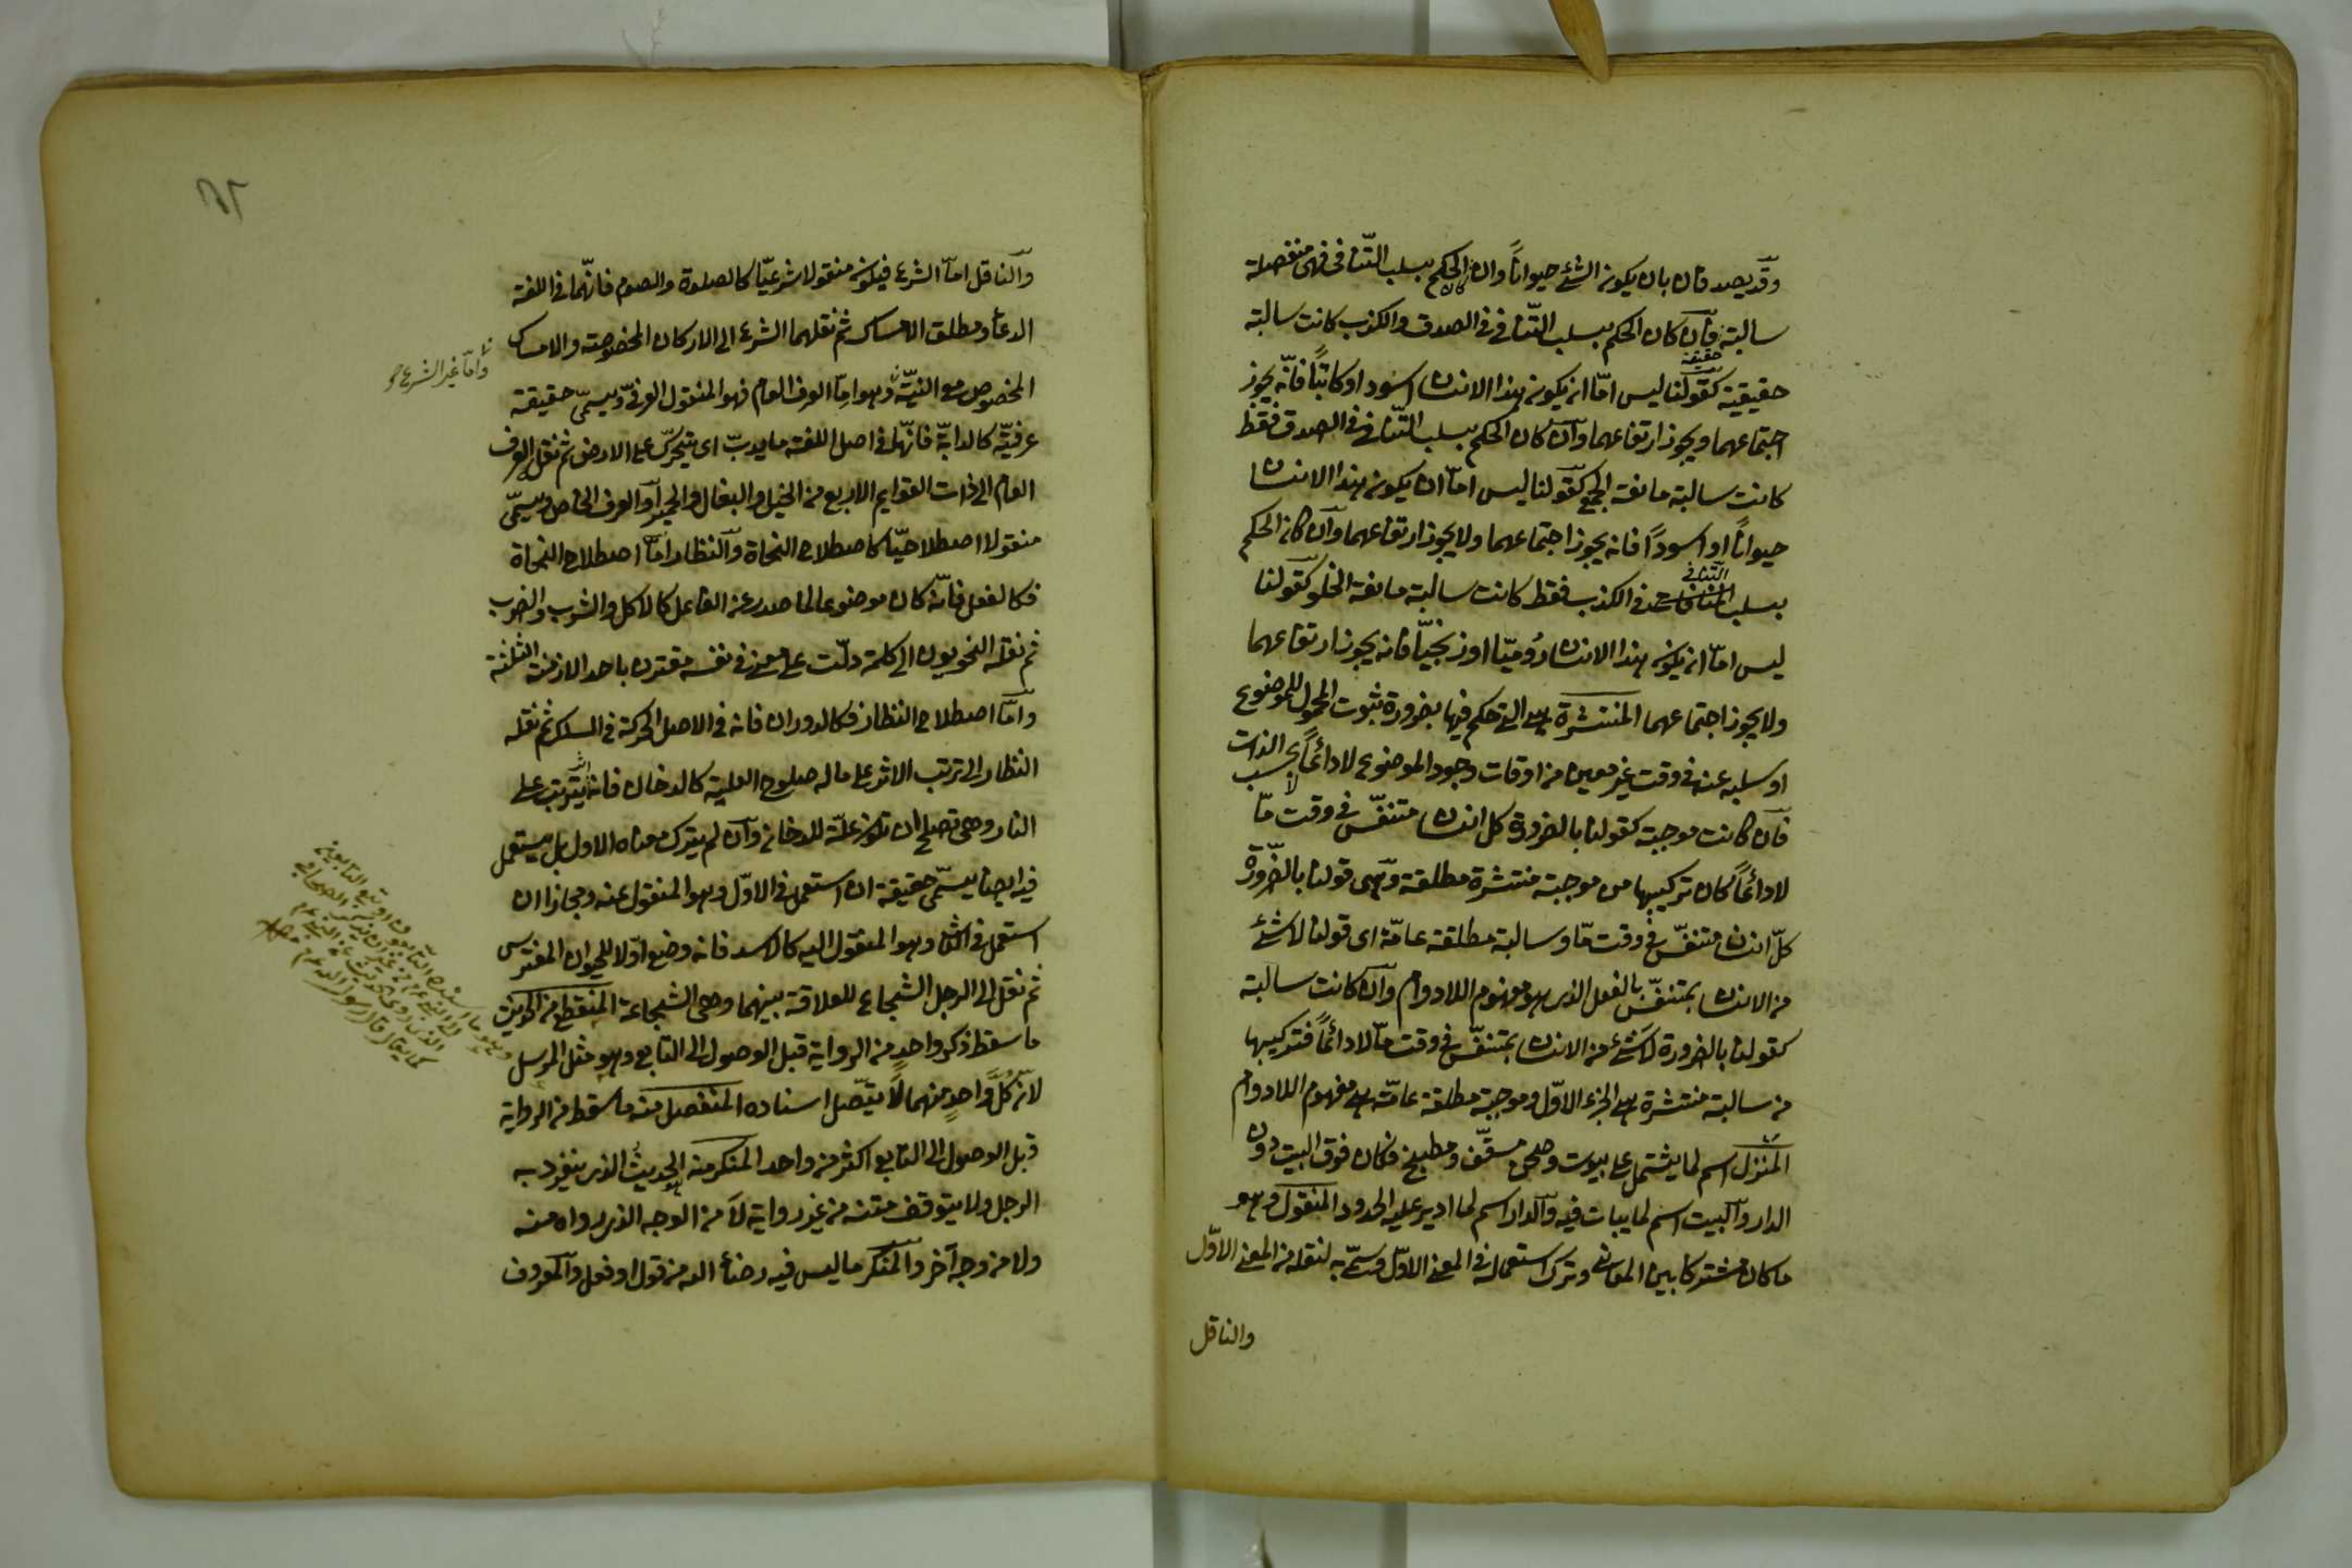 وقد يصدقان بان يكون الشئ حيواناً وان كان الحكم بسلب التنافى فهى منفصلة
سالبة فان كان الحكم بسلب التنافى فى الصدق والكذب كانت سالبة
حقيقية كقولنا ليس امّا ان يكون هذا الانسان اسود او كاتباً فانّه يجوز
اجتماعهما ويجوز ارتفاعهما وان كان الحكم بسلب التنافى فى الصدق فقط
كانت سالبة مانعة الجمع كقولنا ليس امّا ان يكون هذا الانسان
حيواناً او اسوداً فانه يجوز اجتماعهما ولا يجوز ارتفاعهما وان كان الحكم
بسلب التنافى فى الكذب فقط كانت سالبة مانعة الخلو كقولنا
ليس امّا ان يكون هذا الانسان رُوميّا او زنجيّاً فانه يجوز ارتفاعهما
ولا يجوز اجتماعهما المنتشرة هى التى حكم فيها بضرورة ثبوت المحمول للموضوع
او سلبه عنه فى وقت غير معين من اوقات وجود الموضوع لا دائماً بحسب الذات
فان كانت موجبة كقولنا بالضرورة كل انسان متنفّس فى وقت مّا
لا دائماً كان تركيبها من موجبة منتشرة مطلقة وهى قولنا بالضّرورة
كلّ انسان متنفّس فى وقت مّا وسالبة مطلقة عامّة اى قولنا لا شئ
من الانسان بمتنفّس بالفعل الذى هو مفهوم اللادوام وان كانت سالبة
كقولنا بالضرورة لا شئ من الانسان بمتنفّس فى وقت مّا لا دائماً فتركيبها
من سالبة منتشرة هى الجزء الاوّل وموجبة مطلقة عامّة هى مفهوم اللادوام
المنزل اسم لما يشتمل على بيوت وصحن مسقّف ومطبخ فكان فوق البيت دون
الدار والبيت اسم لما يبات فيه والدار اسم لما ادير عليه الحدود المنقول وهو
ما كان مشتركا بين المعانى وترك استعماله فى المعنى الاوّل وسمّى به لنقله من المعنى الاوّل
والناقل
والناقل امّا الشرع فيكون منقولا شرعيّا كالصلوة والصوم فانّهما فى اللغة
الدعاء ومطلق الامساك ثم نقلهما الشرع الى الاركان المخصوصة والامساك
وامّا غير الشرع
المخصوص مع النيّة وهو امّا العرف العام فهو المنقول العرفى ويسمّى حقيقة
عرفيّة كالدابّة فانّها فى اصل اللغة ما يدبّ اى يتحرّك على الارض ثم نقل العرف
العام الى ذات القوايم الاربع من الخيل والبغال والحمير او العرف الخاص ويسمّى
منقولا اصطلاحيّا كاصطلاح النحاة والنظار امّا اصطلاح النحاة
فكالفعل فانّه كان موضوعا لما صدر عن الفاعل كالاكل والشرب والضرب
ثم نقله النحويون الى كلمة دلّت على معنى فى نفسه مقترن باحد الازمنة الثلثة
وامّا اصطلاح النظار فكالدوران فانه فى الاصل الحركة فى السكك ثم نقله
النظار الى ترتب الاثر على ما له صلوح العلية كالدخان فانه يترتب على
النار وهى تصلح ان تكون علّة للدخان وان لم يترك معناه الاول بل يستعمل
فيه ايضا يسمّى حقيقة ان استعمل فى الاوّل وهو المنقول عنه ومجازا ان
استعمل فى الثانى وهو المنقول اليه كالاسد فانه وضع اوّلا للحيوان المفترس
ثم نقل الى الرجل الشجاع للعلاقة بينهما وهى الشجاعة المنقطع من الحديث
ما سقط ذكر واحدٍ من الرواية قبل الوصول الى التابع وهو مثل المرسل
لانّ كلَّ واحدٍ منهما لا يتّصل اسناده المنفصل منه ما سقط من الرواية
قبل الوصول الى التابع اكثر من واحد المنكر منه الحديث الذى ينفرد به
الرجل ولا يتوقف متنه من غير رواية لا من الوجه الذى رواه منه
ولا من وجه آخر والمنكر ما ليس فيه رضاء الله من قول او فعل والمعروف